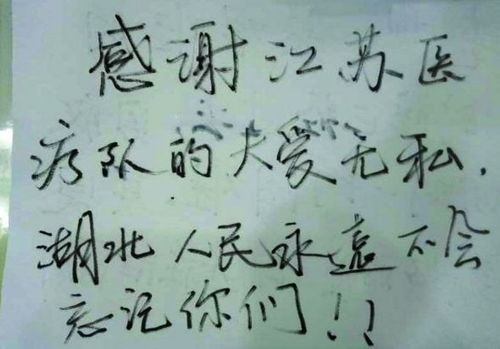 感谢江苏医
疗队的大爱无私.
湖北人民永遠不会
忘记你们!!